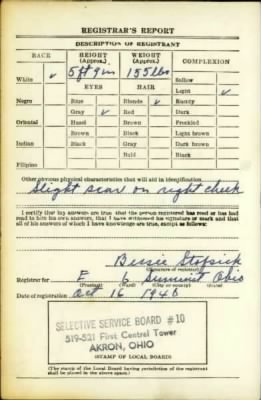 REGISTRAR'S REPORT
DESCRIPTION OF REGISTRANT
RACE HEIGHT (Approx.) WEIGHT (Approx.) COMPLEXION
5 ft 9 in 155 lbs
White ✓ Sallow
EYES HAIR Light ✓
Negro Blue Blonde ✓ Ruddy
Gray ✓ Red Dark
Oriental Hazel Brown Freckled
Brown Black Light brown
Indian Black Gray Dark brown
Bald Black
Filipino
Other obvious physical characteristics that will aid in identification
Slight scar on right cheek
I certify that my answers are true; that the person registered has read or has had
read to him his own answers; that I have witnessed his signature or mark and that
all of his answers of which I have knowledge are true, except as follows:
Bessie
(Signature of registrar)
Registrar for E 6 Ohio
(Precinct) (Ward) (City or county) (State)
Date of registration Oct 16 1940
SELECTIVE SERVICE BOARD #10
519-521 First Central Tower
AKRON, OHIO
(STAMP OF LOCAL BOARD)
(The stamp of the Local Board having jurisdiction of the registrant
shall be placed in the above space.)